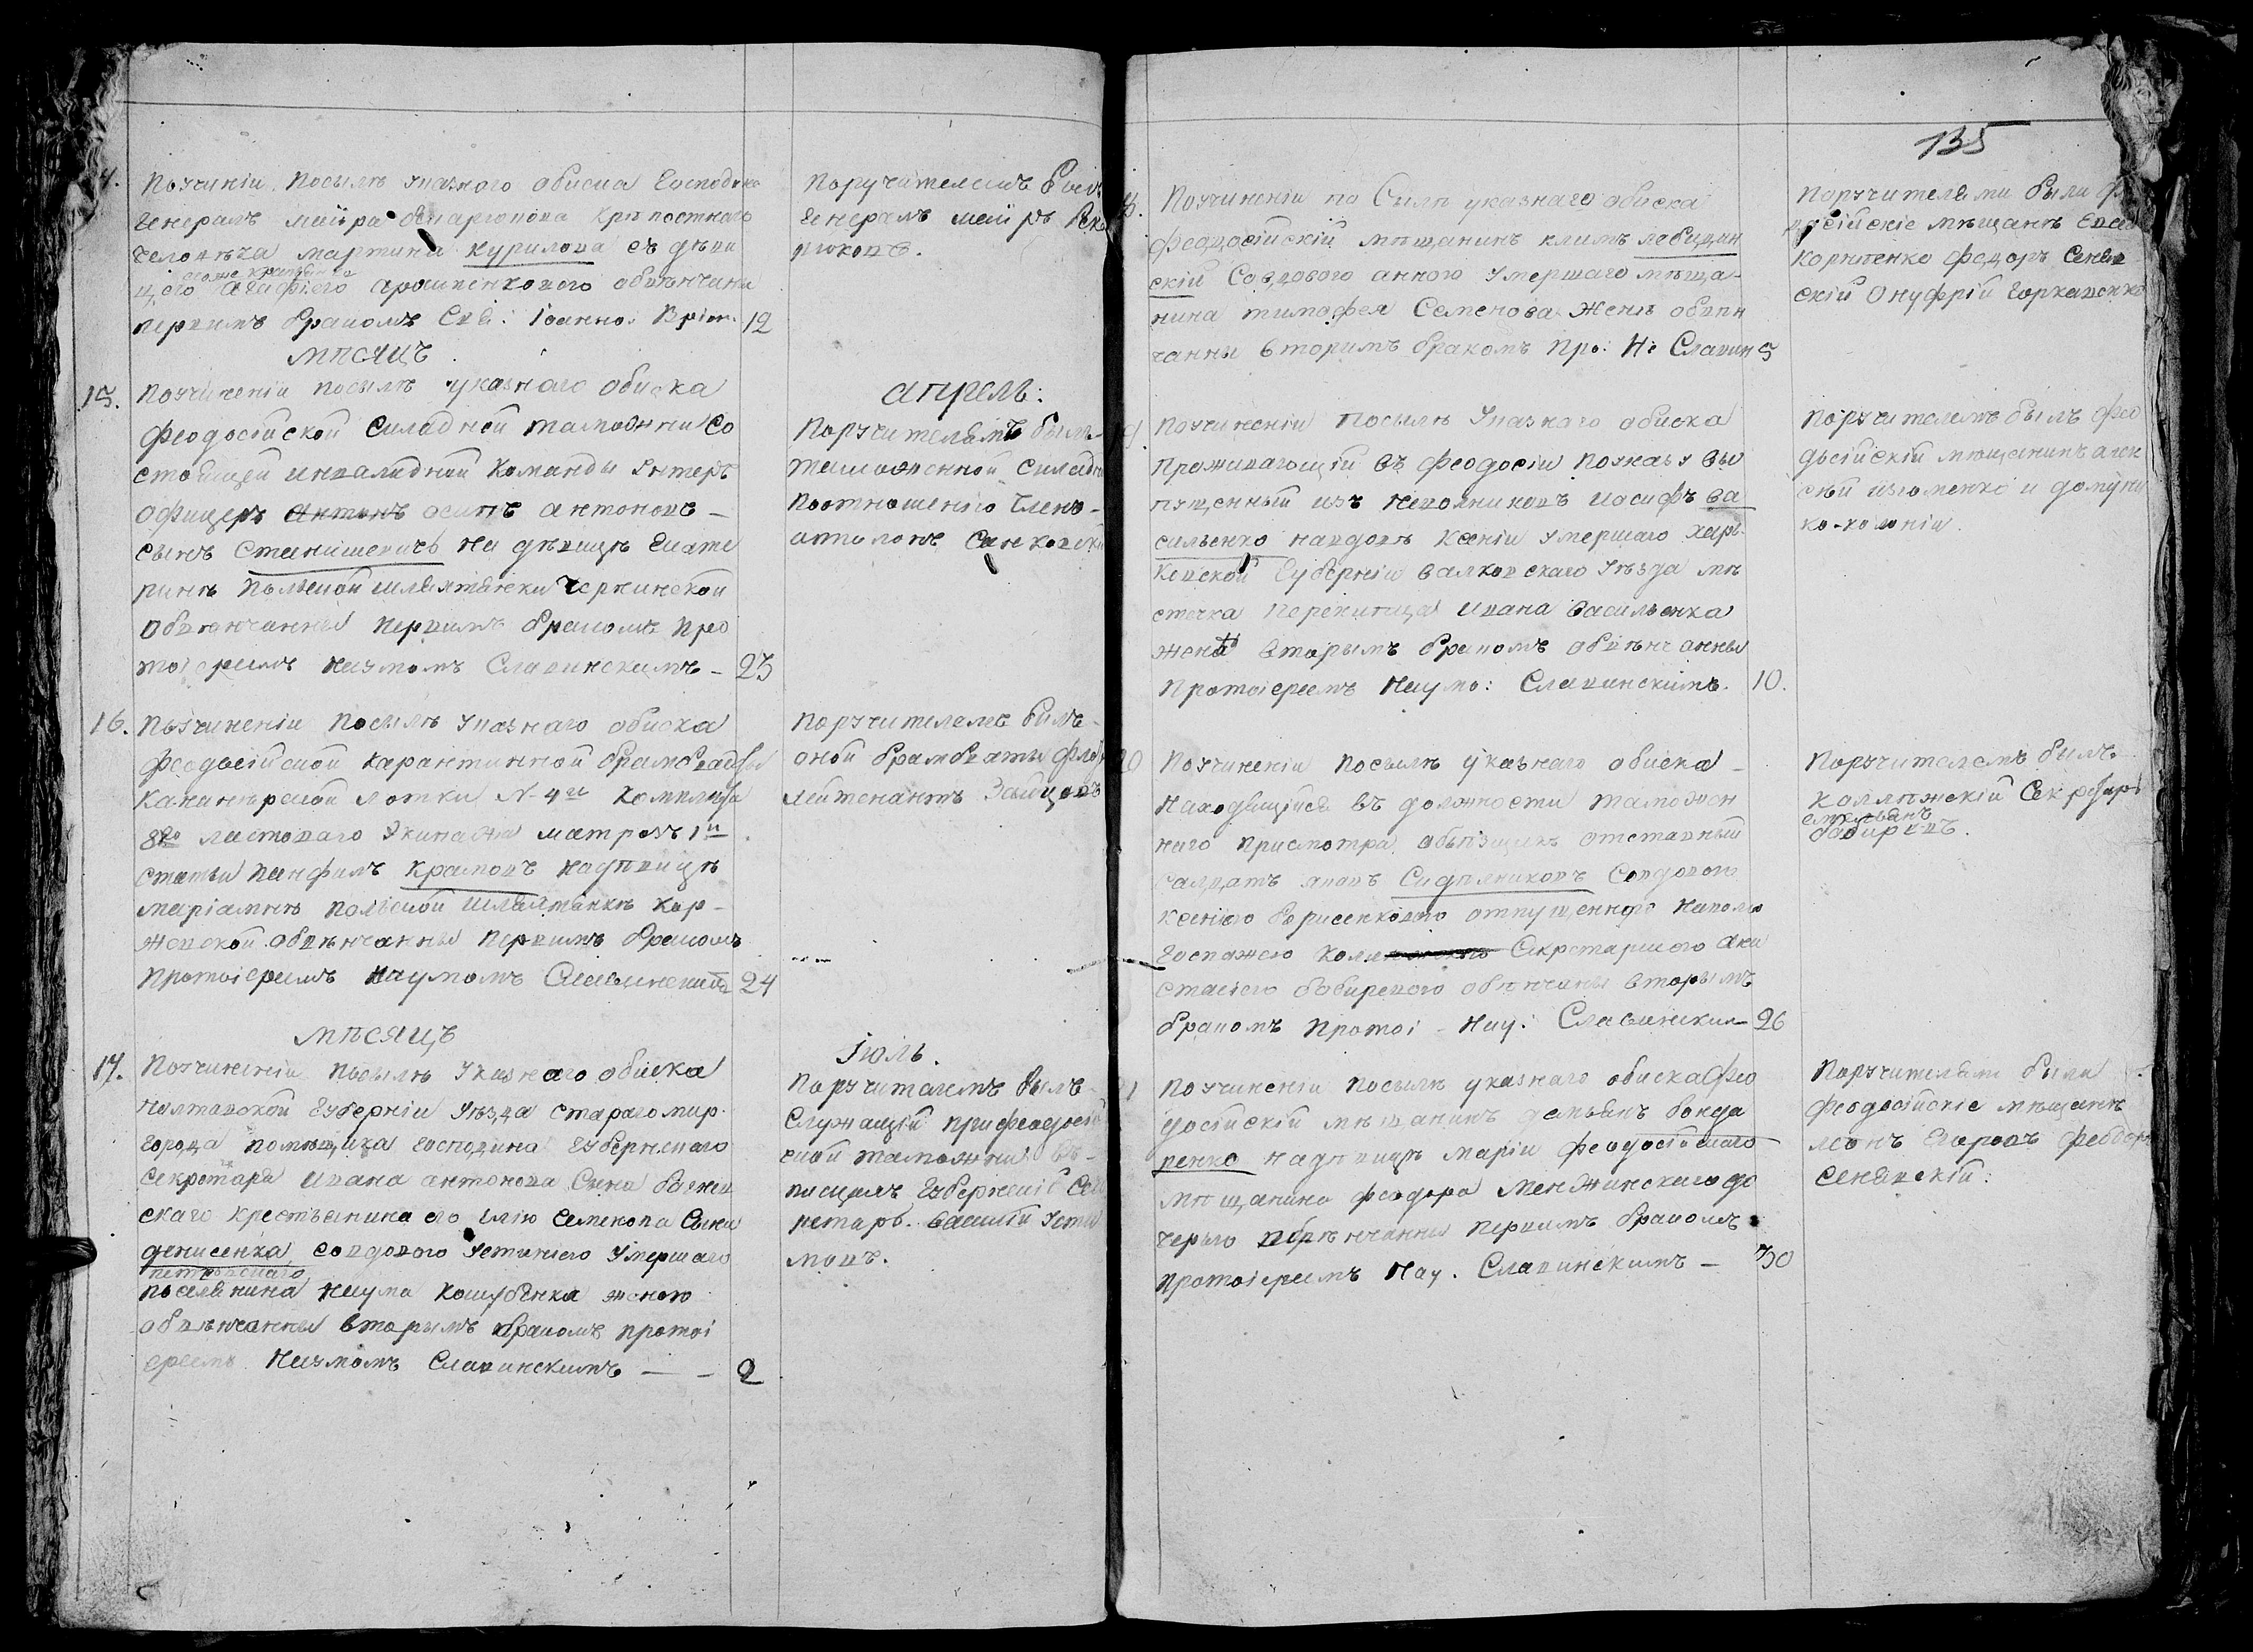 Поучинiи посылѣ указного обиска Господина
Генералъ маiора Крѣпостнаго
человѣка мартина Курилова съ дѣви
цею Агафiею обвѣнчани
первимъ бракомъ Свя: Iоанно: 12
Поручителемъ
Генералъ маiоръ
мѣсяцъ
апрель:
15. Поучиненiи посылѣ указнаго обиска
Феодосiйской Складней таможни Со
стоящей инвалидной Команды Унтеръ
офицеръ Антонъ осипъ антоновъ –
сынъ Станишевичъ На дѣвицѣ Екате
ринѣ Польской шляхтянски Чернинской
Обвѣнчанны первимъ бракомъ про
тоiереимъ Наумомъ Славинскимъ – 23
Поручителямъ былъ
таможенной Складни
поотношенiю Члено –
16. Поучиненiи посылѣ указнаго обиска
Феодосiйской Карантинной брамвахты
Канинѣрской лотки N-4й Компанiи
8го ластоваго Экипажа матрозъ 1й
статьи Панфилъ Крамовъ надѣвицѣ
марiамнѣ польской шляхтянкѣ Кор –
жевской обвѣнчанны первимъ бракомъ
протоiереимъ Наумомъ Славинскимъ 24
Поручителемъ билъ
оной брамвахты флота
лейтенантъ
мѣсяцъ
Iюль.
17. Поучиненiи посылѣ Указнаго обиска
Полтавской Губернiи Уѣзда стараго мир
города помѣщика Господина Губернскаго
Секретаря Ивана антонова Сына
скаго крестьянина его Илiю Семенова Сына
денисенка совдовою Устинiею умершаго
поселянина Наума Кошубенка женою
обвѣнчанны вторымъ бракомъ протоi
ереемъ Наумомъ Славинскимъ — – 2
Поручителемъ былъ
Служащiй прифеодосiй
ской таможни
писцомъ Губернскiй Сек
ретарь Василiй Усти
мовъ.
135
Поучиненiи по Силѣ указнаго обиска
феодосiйскiй мѣщанинъ климъ лебедин
скiй Совдовою анною Умершаго мѣща-
нина тимофея Семенова Женѣ обвѣн
чанны вторимъ бракомъ Про: На Славин 5
Поручителями были фе
досiйскiе мѣщанѣ
Корнѣенко федоръ Сеняв
скiй Онуфрiй Горкавенко
Поучиненiи посылѣ Указнаго обиска
Проживающiй въ феодосiи поуказу вы
пущенный изъ Невольниковъ иосифъ ва
сильенко навдовѣ Ксенiи умершаго харь
Ковской Губернiи валковскаго Уѣзда мѣ
стечка Перекипца Ивана Васильенка
жены вторымъ бракомъ обвѣнчанны
Протоiереемъ Наумо: Славинскимъ. 10.
Поручителемъ былъ фео
досiйскiй мѣщанинъ алек
сѣй изюменко и
20 Поучиненiи посылѣ указнаго обиска –
Находящiйся въ должности таможен
наго присмотра объѣзщикъ отставный
салдатъ яковъ Сидѣлниковъ Совдовою
Ксенiею борисенковою отпущенною Наволю
Госпажею Кол Секретаршою Ана
стасiею бабиревою обвѣнчаны вторымъ
бракомъ Протоi – Нау. Славинским 26
Поручителемъ былъ
колляжскiй Секретарь
емельянъ
бабиревъ.
Поучиненiи посылѣ указнаго обиска Фео
досiйскiй мѣщанинъ демьянъ бонда
ренко надѣвицѣ марiи Феодосiйскаго
мѣщанина Феодора Менжинскаго до
черью обвѣнчанны первимъ бракомъ
протоiереемъ Нау. Славинскимъ – 30
Поручителями были
Феодосiйскiе мѣщанѣ
леонъ Егоровъ феодоръ
Сенявскiй.